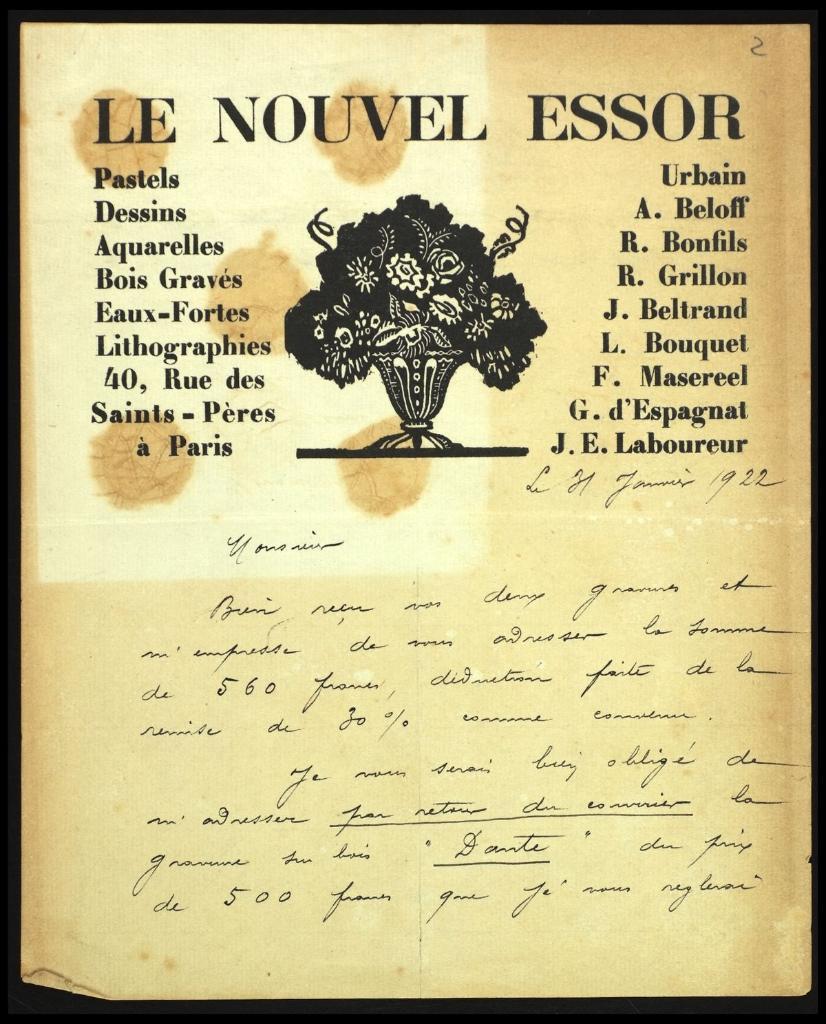 2
LE NOUVEL ESSOR
Pastels
Dessins
Aquarelles
Bois Gravés
Eaux-Fortes
Lithographies
40, Rue des
Saints-Pères
à Paris
Urbain
A. Beloff
R. Bonfils
R. Grillon
J. Beltrand
L. Bouquet
F. Masereel
G. d'Espagnat
J. E. Laboureur
Le 31 Janvier 1922
Monsieur
Bien reçu vos deux gravures et
m'empresse de vous adresser la somme
de 560 francs, déduction faite de la
remise de 30% comme convenu.
Je vous serais bien obligé de
m'adresser par retour du courrier la
gravure sur bois "Dante" du prix
de 500 francs que je vous réglerai